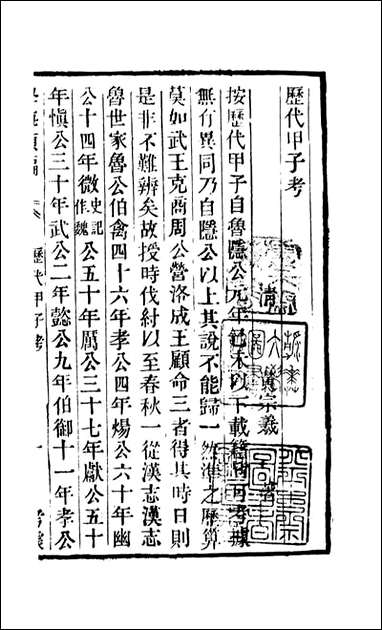 歷代甲子考
清 黃宗羲 著
按歷代甲子自魯隱公元年己未以下載籍皆可考據
無有異同乃自隱公以上其說不能歸一然準之曆算
莫如武王克商周公營洛成王顧命三者得其時日則
是非不難辨矣故授時伐紂以至春秋一從漢志漢志
魯世家魯公伯禽四十六年孝公四年煬公六十年幽
公十四年微史記作魏公五十年厲公三十七年獻公五十
年愼公三十年武公二年懿公九年伯御十一年孝公
歷代甲子考 一